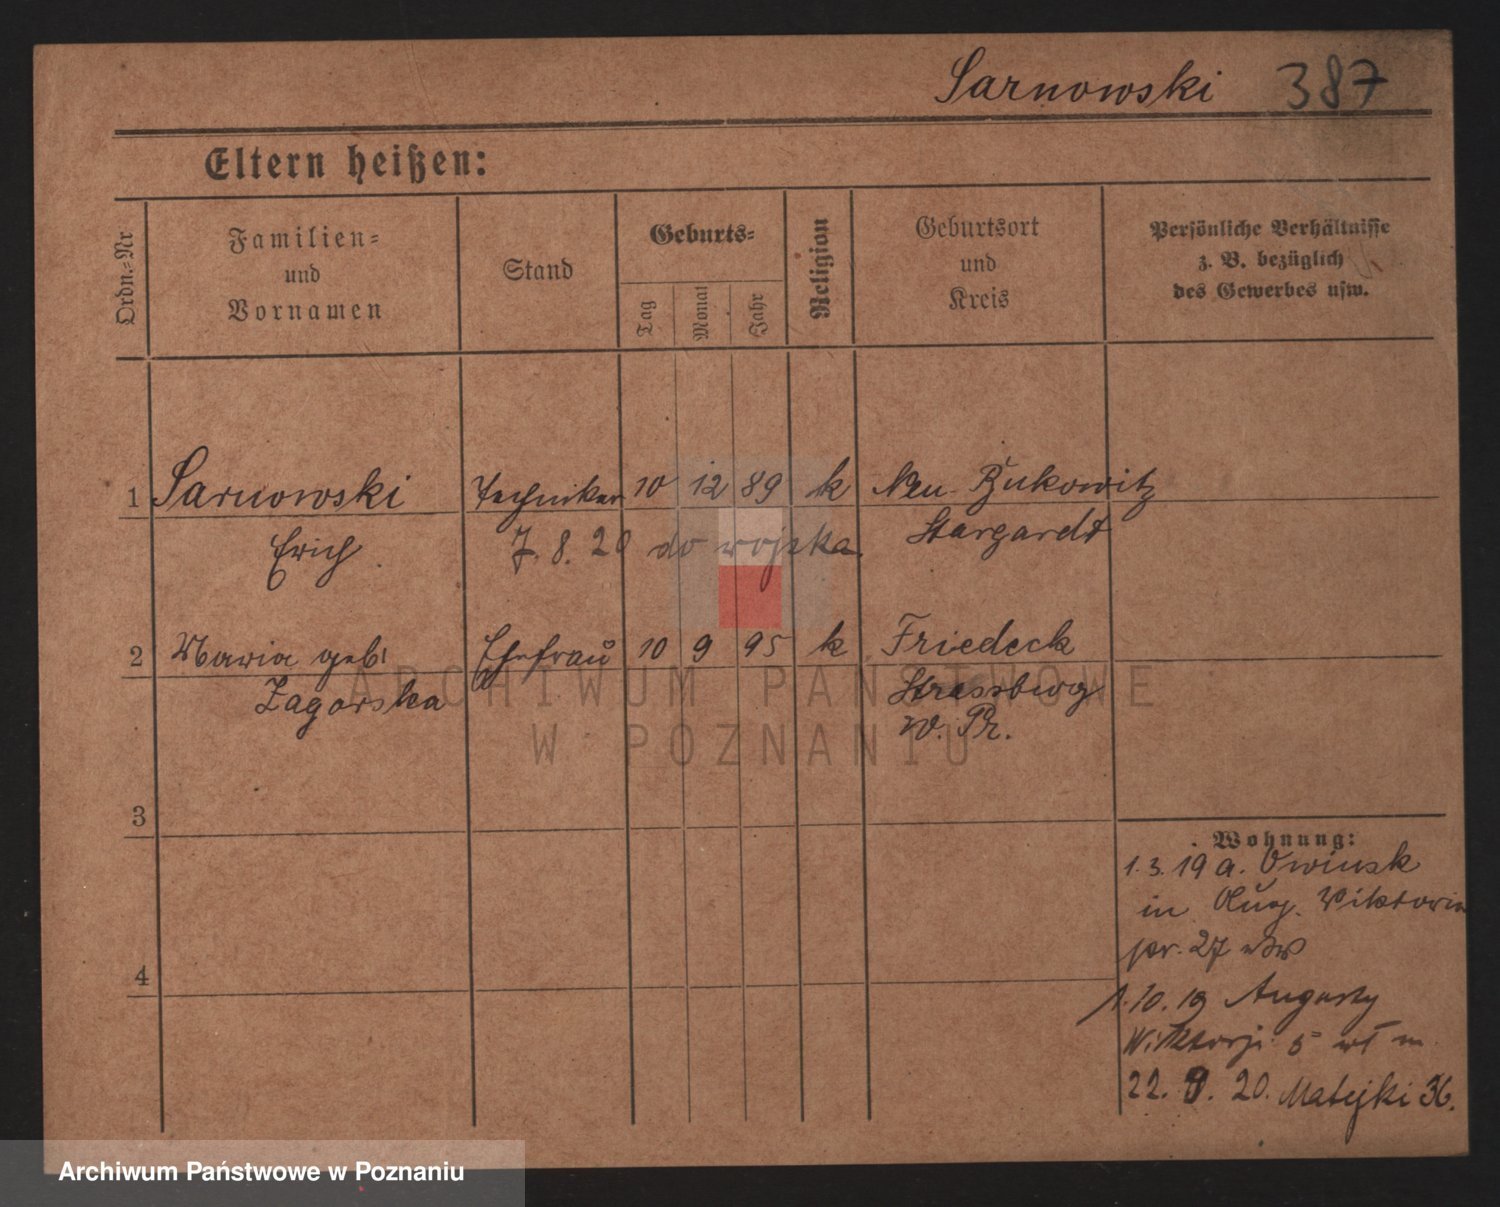 Sarnowski 387
Eltern heißen:
Ordn.-Nr
Familien-
und
Vornamen
Stand
Geburts-
Tag
Monat
Jahr
Religion
Geburtsort
und
Kreis
Persönliche Verhältnisse
z. B. bezüglich
des Gewerbes usw.
1 Sarnowski Techniker 10 12 89 k Neu Bukowitz
Erich 7. 8. 20 do wojska. Stargardt
2 Maria geb. Ehefrau 10 9 95 k Friedeck
Zagorska Strassburg
W. Pr.
3
Wohnung:
1. 3. 19 a. Owinsk
in Aug. Viktoria
27
4
1. 10. 19 Augusty
Wiktorji 5
22. 9. 20. Matejki 36.
ARCHIWUM PAŃSTWOWE
W POZNANIU
Archiwum Państwowe w Poznaniu